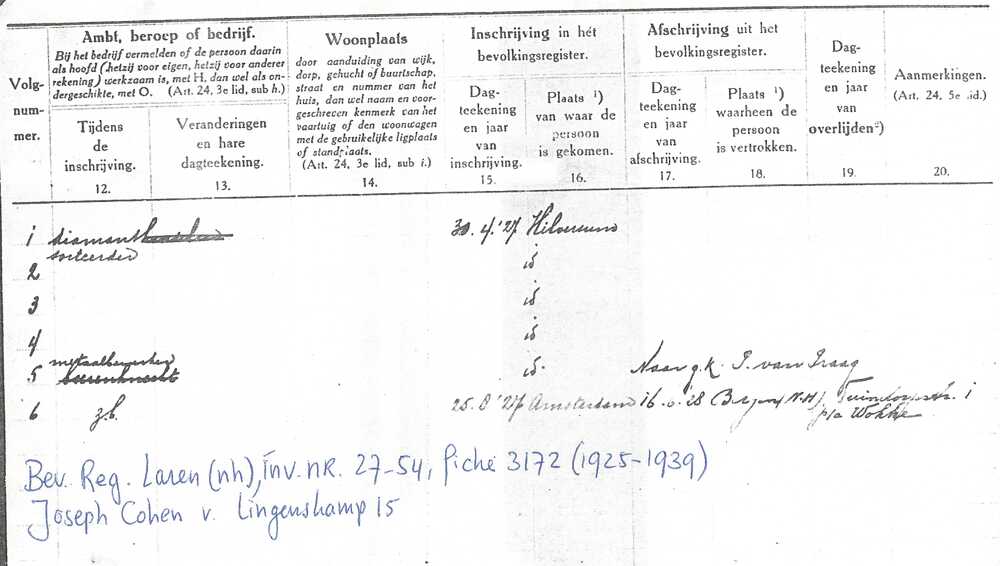 Volg-
num-
mer.
Ambt, beroep of bedrijf.
Bij het bedrijf vermelden of de persoon daarin
als hoofd (hetzij voor eigen, hetzij voor anderer
rekening) werkzaam is, met H. dan wel als on-
dergeschikte, met O. (Art. 24, 3e lid, sub h.)
Tijdens
de
inschrijving.
12.
Veranderingen
en hare
dagteekening.
13.
Woonplaats
door aanduiding van wijk,
dorp, gehucht of buurtschap,
straat en nummer van het
huis, dan wel naam en voor-
geschreven kenmerk van het
vaartuig of den woonwagen
met de gebruikelijke ligplaats
of standplaats.
(Art. 24, 3e lid, sub i.)
14.
Inschrijving in hét
bevolkingsregister.
Dag-
teekening
en jaar
van
inschrijving.
15.
Plaats ¹)
van waar de
persoon
is gekomen.
16.
Afschrijving uit het
bevolkingsregister.
Dag-
teekening
en jaar
van
afschrijving.
17.
Plaats ¹)
waarheen de
persoon
is vertrokken.
18.
Dag-
teekening
en jaar
van
overlijden²)
19.
Aanmerkingen.
(Art. 24, 5e lid.)
20.
1 diamant 30.4.'27 Hilversum
sorteerder
2 id
3 id
4 id
metaalbewerker
5 id. Naar g.k. I. van Praag
6 z.b. 25.8.'27 Amsterdam 16 '28 Bergen (N.H.) 1
p/a Wokke
Bev. Reg. Laren (nh), inv. nR. 27-54, fiche 3172 (1925-1939)
Joseph Cohen v. Lingenskamp 15